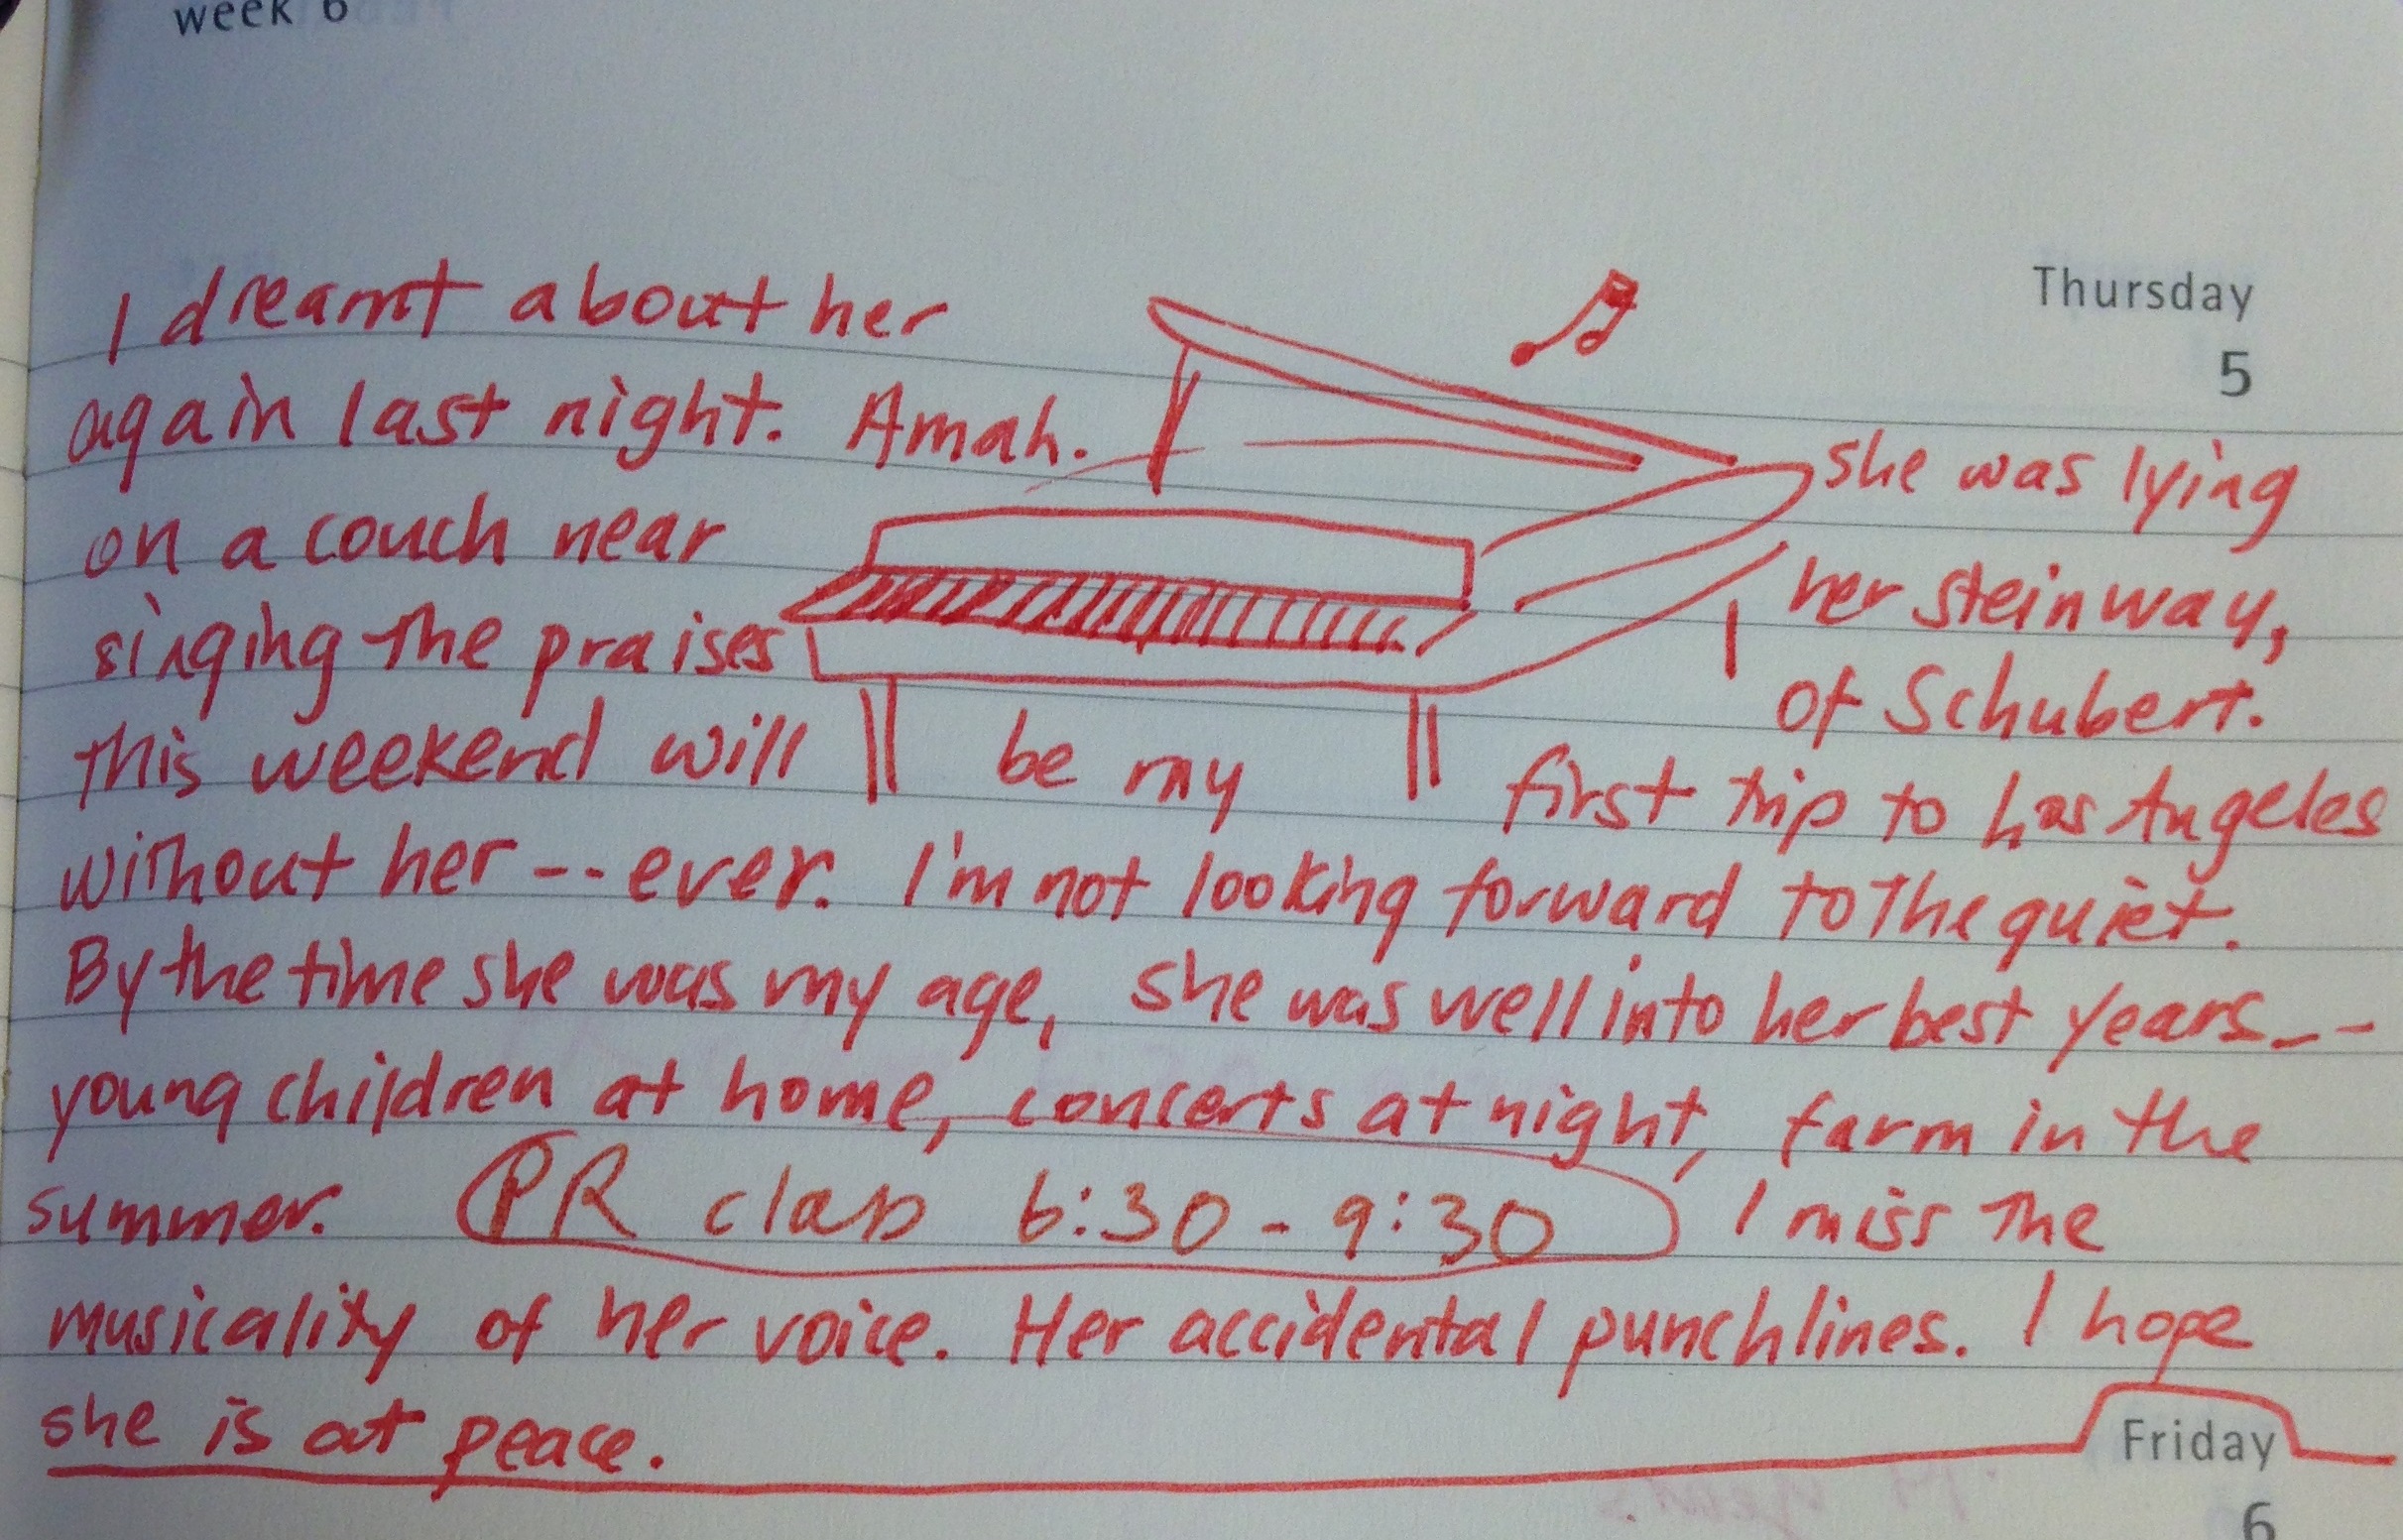 week 6
Thursday
5
I dreamt about her
again last night. Amah. she was lying
on a couch near her Steinway,
singing the praises of Schubert.
This weekend will be my first trip to Los Angeles
without her -- ever. I'm not looking forward to the quiet.
By the time she was my age, she was well into her best years --
young children at home, concerts at night, farm in the
summer. PR class 6:30 - 9:30 I miss the
musicality of her voice. Her accidental punchlines. I hope
she is at peace.
Friday
6